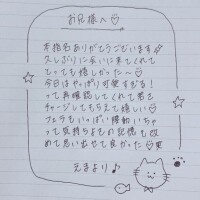 お兄様へ♡
本指名ありがとうございます
久しぶりに会いに来てくれて
とっても嬉しかった〜♡
今日はやっぱり可愛すぎる！
って再確認してくれて若さ
チャージしてもらえて嬉しい♡
フェラもいっぱい褒めていちゃ
って気持ちよさの記憶も改
めて思い出せて良かった♡笑
えまより♪